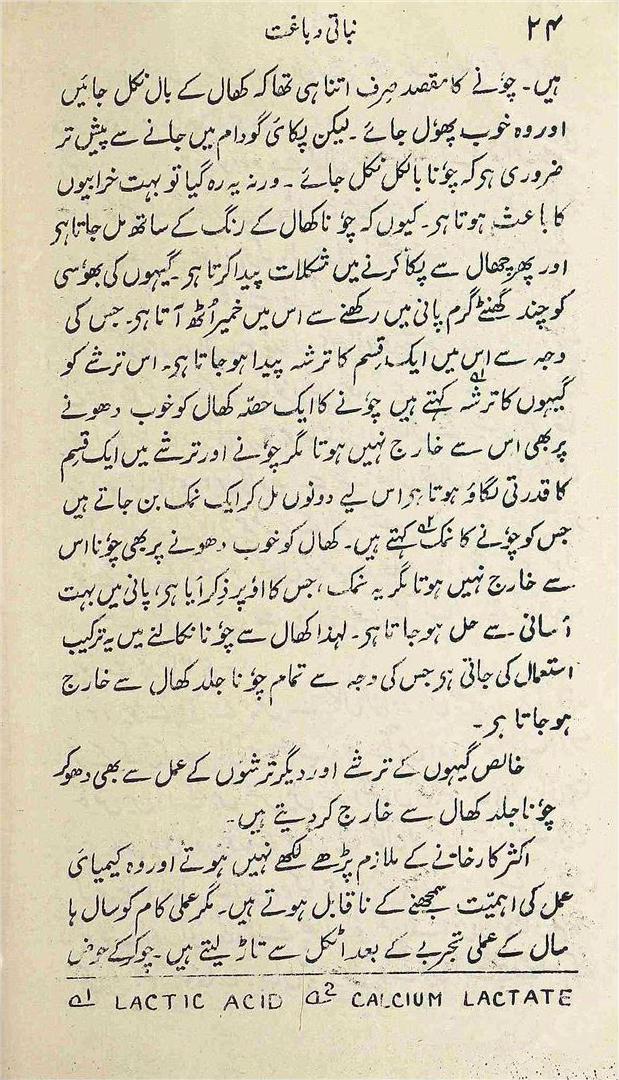 ۲۴
نباتی دباغت
ہیں۔ چوٗنے کا مقصد صِرف اتنا ہی تھا کہ کھال کے بال نکل جائیں
اور وہ خوب پھوٗل جائے۔ لیکن پکائی گودام میں جانے سے پیش تر
ضروری ہو کہ چوٗنا بالکل نکل جائے۔ ورنہ یہ رہ گیا تو بہت خرابیوں
کا باعث ہوتا ہو۔ کیوں کہ چوٗنا کھال کے رنگ کے ساتھ مل جاتا ہو
اور پھر چھال سے پکا کرنے میں مشکلات پیدا کرتا ہو۔ گیہوں کی بھوٗسی
کو چند گھنٹے گرم پانی میں رکھنے سے اس میں خمیر اُٹھ آتا ہو۔ جس کی
وجہ سے اس میں ایک قِسم کا ترشہ پیدا ہوجاتا ہو۔ اس ترشے کو
گیہوں کا ترشہ ؂۱ کہتے ہیں چوٗنے کا ایک حصّہ کھال کو خوب دھونے
پر بھی اس سے خارج نہیں ہوتا مگر چوٗنے اور ترشے میں ایک قِسم
کا قدرتی لگاؤ ہوتا ہو اس لیے دونوں مل کر ایک نمک بن جاتے ہیں
جس کو چوٗنے کا نمک ؂۲ کہتے ہیں۔ کھال کو خوب دھونے پر بھی چوٗنا اس
سے خارج نہیں ہوتا مگر یہ نمک، جس کا اوٗپر ذِکر آیا ہو، پانی میں بہت
آسانی سے حل ہوجاتا ہو۔ لہٰذا کھال سے چوٗنا نکالنے میں یہ ترکیب
استعمال کی جاتی ہو جس کی وجہ سے تمام چوٗنا جلد کھال سے خارج
ہوجاتا ہو۔
خالص گیہوں کے ترشے اور دیگر ترشوں کے عمل سے بھی دھوکر
چوٗنا جلد کھال سے خارج کر دیتے ہیں۔
اکثر کارخانے کے ملازم پڑھے لکھے نہیں ہوتے اور وہ کیمیائی
عمل کی اہمیّت سمجھنے کے ناقابل ہوتے ہیں۔ مگر عملی کام کو سال ہا
سال کے عملی تجربے کے بعد اٹکل سے تاڑ لیتے ہیں۔ چوکر کے حوض
؂۱ LACTIC ACID ؂۲ CALCIUM LACTATE